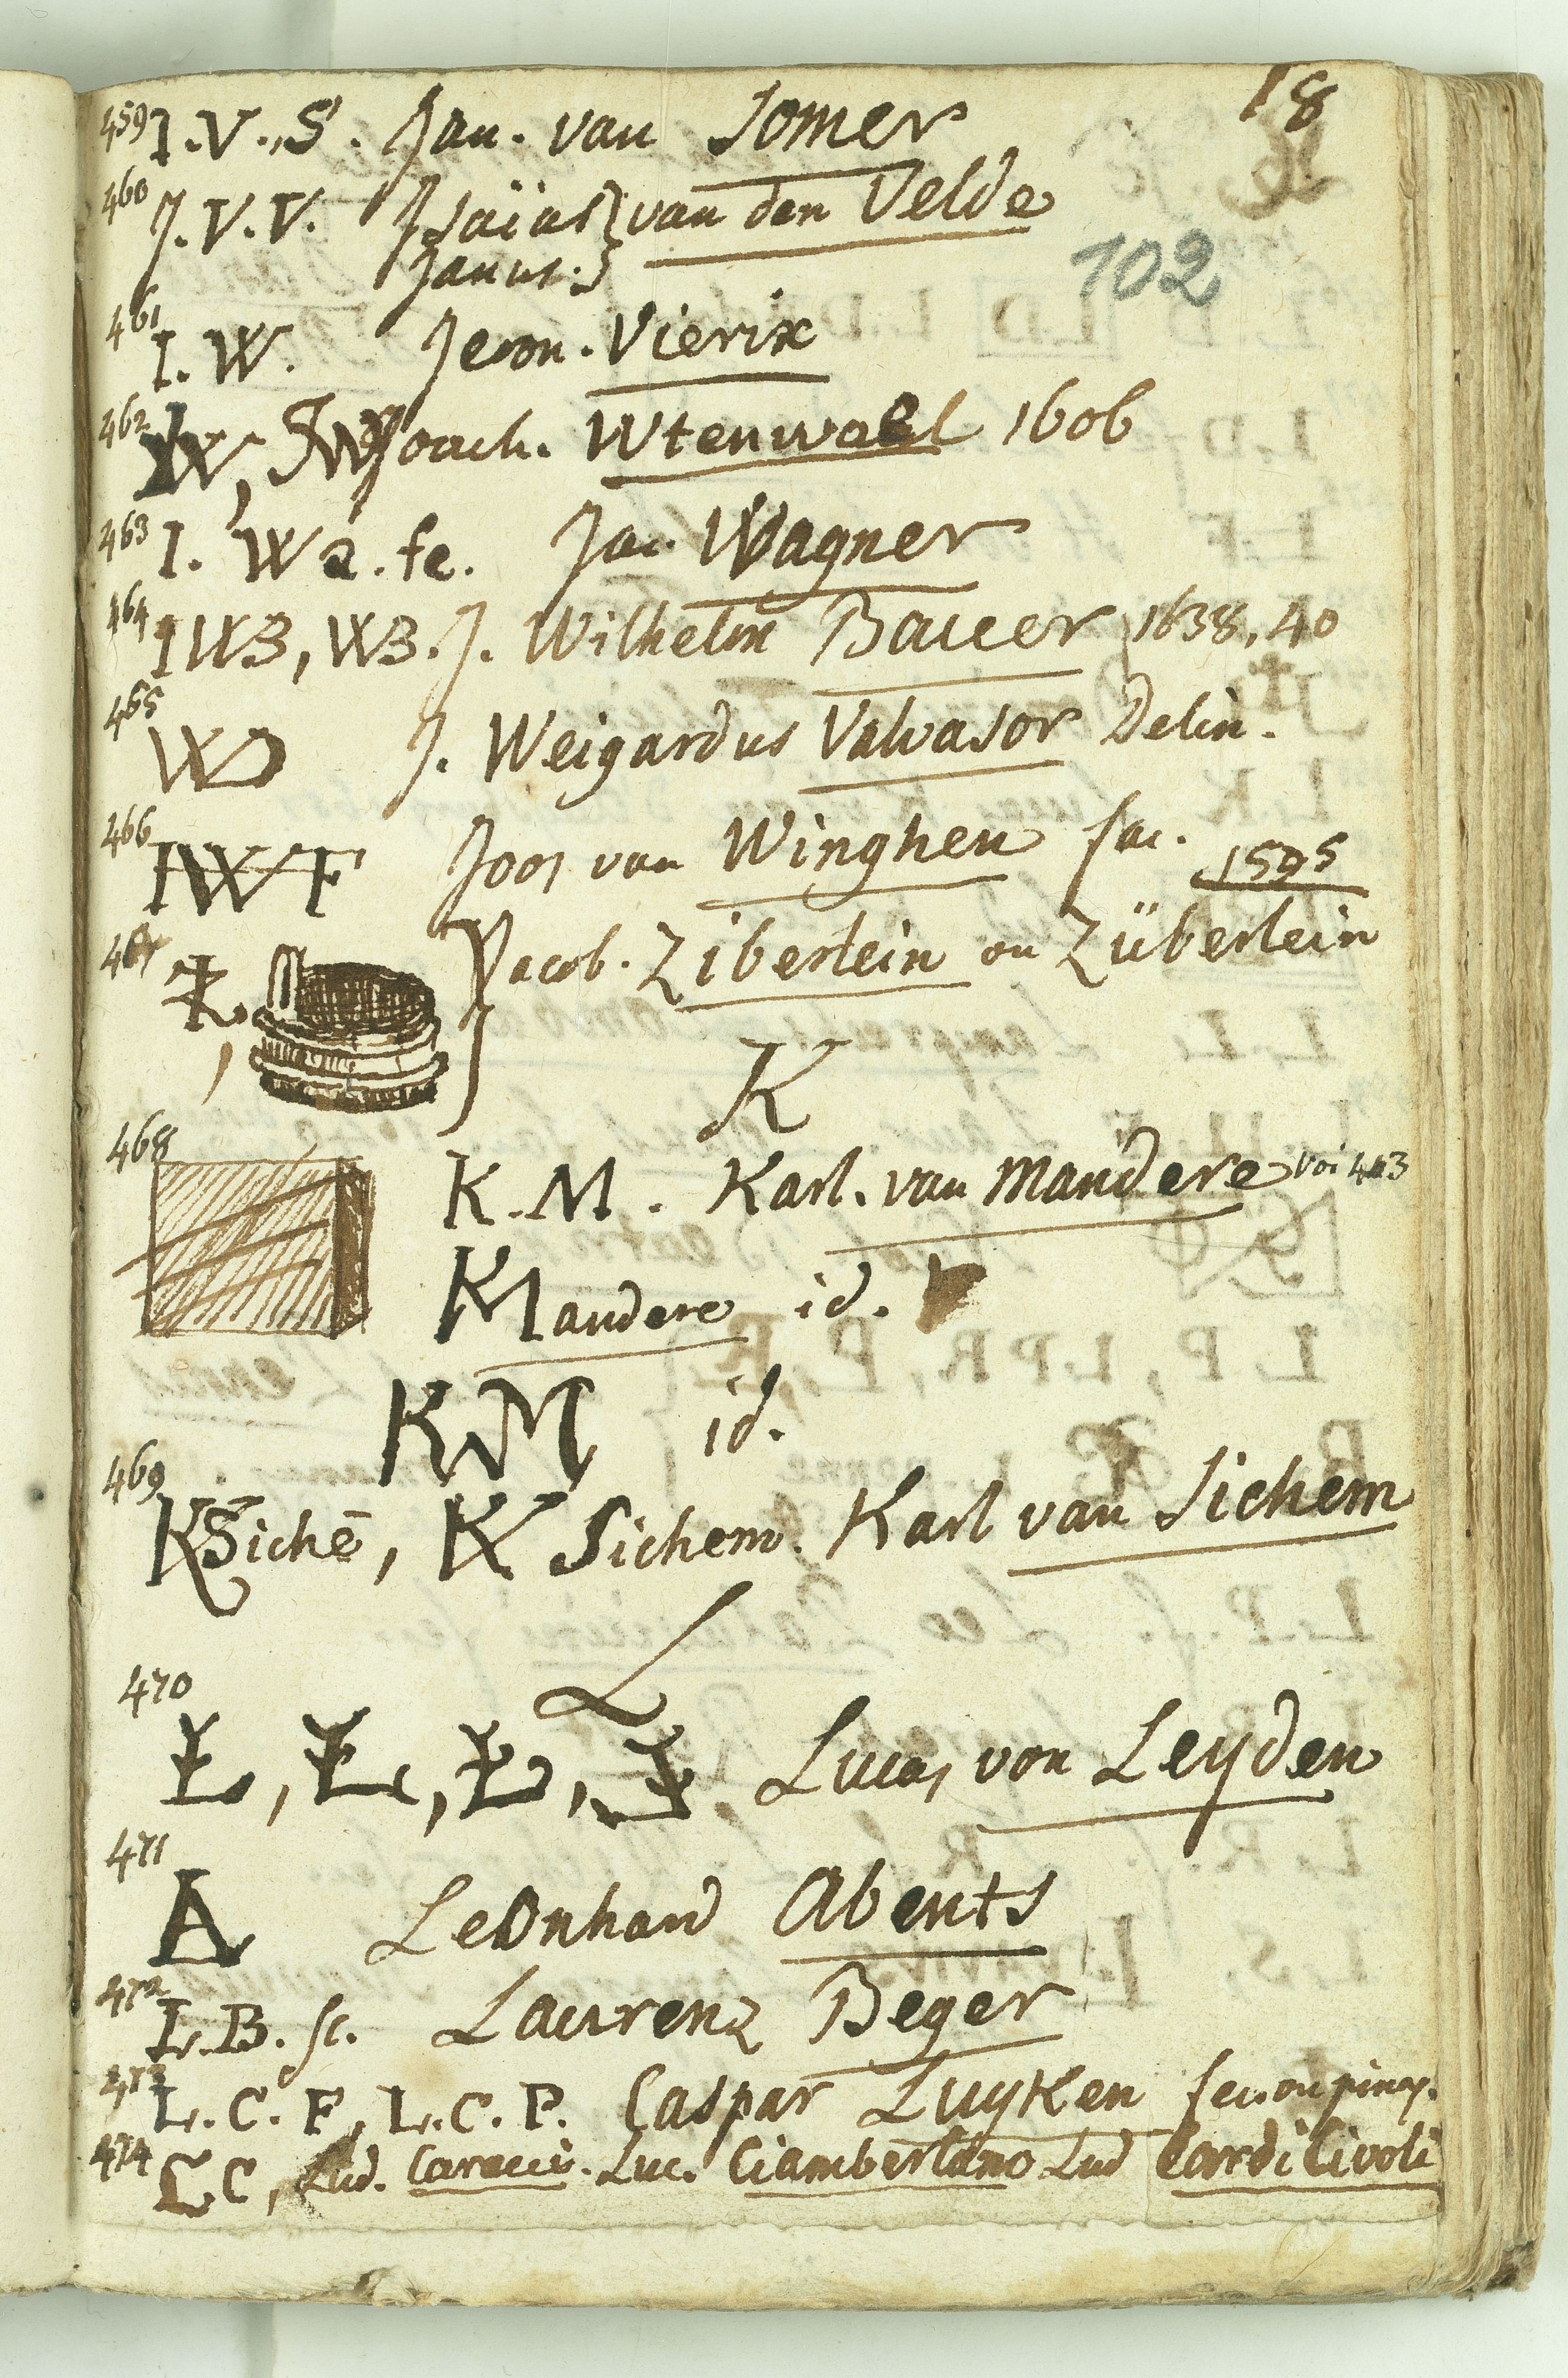 18
459 I.V.S. Jan. van Somer
460 J.V.V. Jsaias } van den Velde
Janus. }
102
461 I.W. Jeron. Vierix
462 IW, JW Joach. Wtenwael 1606
463 I. Wa. fe. Jac. Wagner
464 IWB, WB. J. Wilhelm Bauer 1638, 40
465 WD J. Weigardus Valvasor Delin.
466 IWF Joos van Winghen fac.
1595
467 Jacob. Ziberlein ou Züberlein
K
468 K.M. Karl. van Mandere voi 443
KMandere id.
KM id.
469 KSichē, K Sichem. Karl van Sichem
L
470 L, L, L, L. Lucas von Leyden
471 A Leonhard Abents
472 L.B. sc. Laurenz Beger
473 L.C.F, L.C.P. Caspar Luyken fec. ou pinx.
474 LC, Lud. Caracci. Luc. Ciamberlano Lud Cardi Civoli